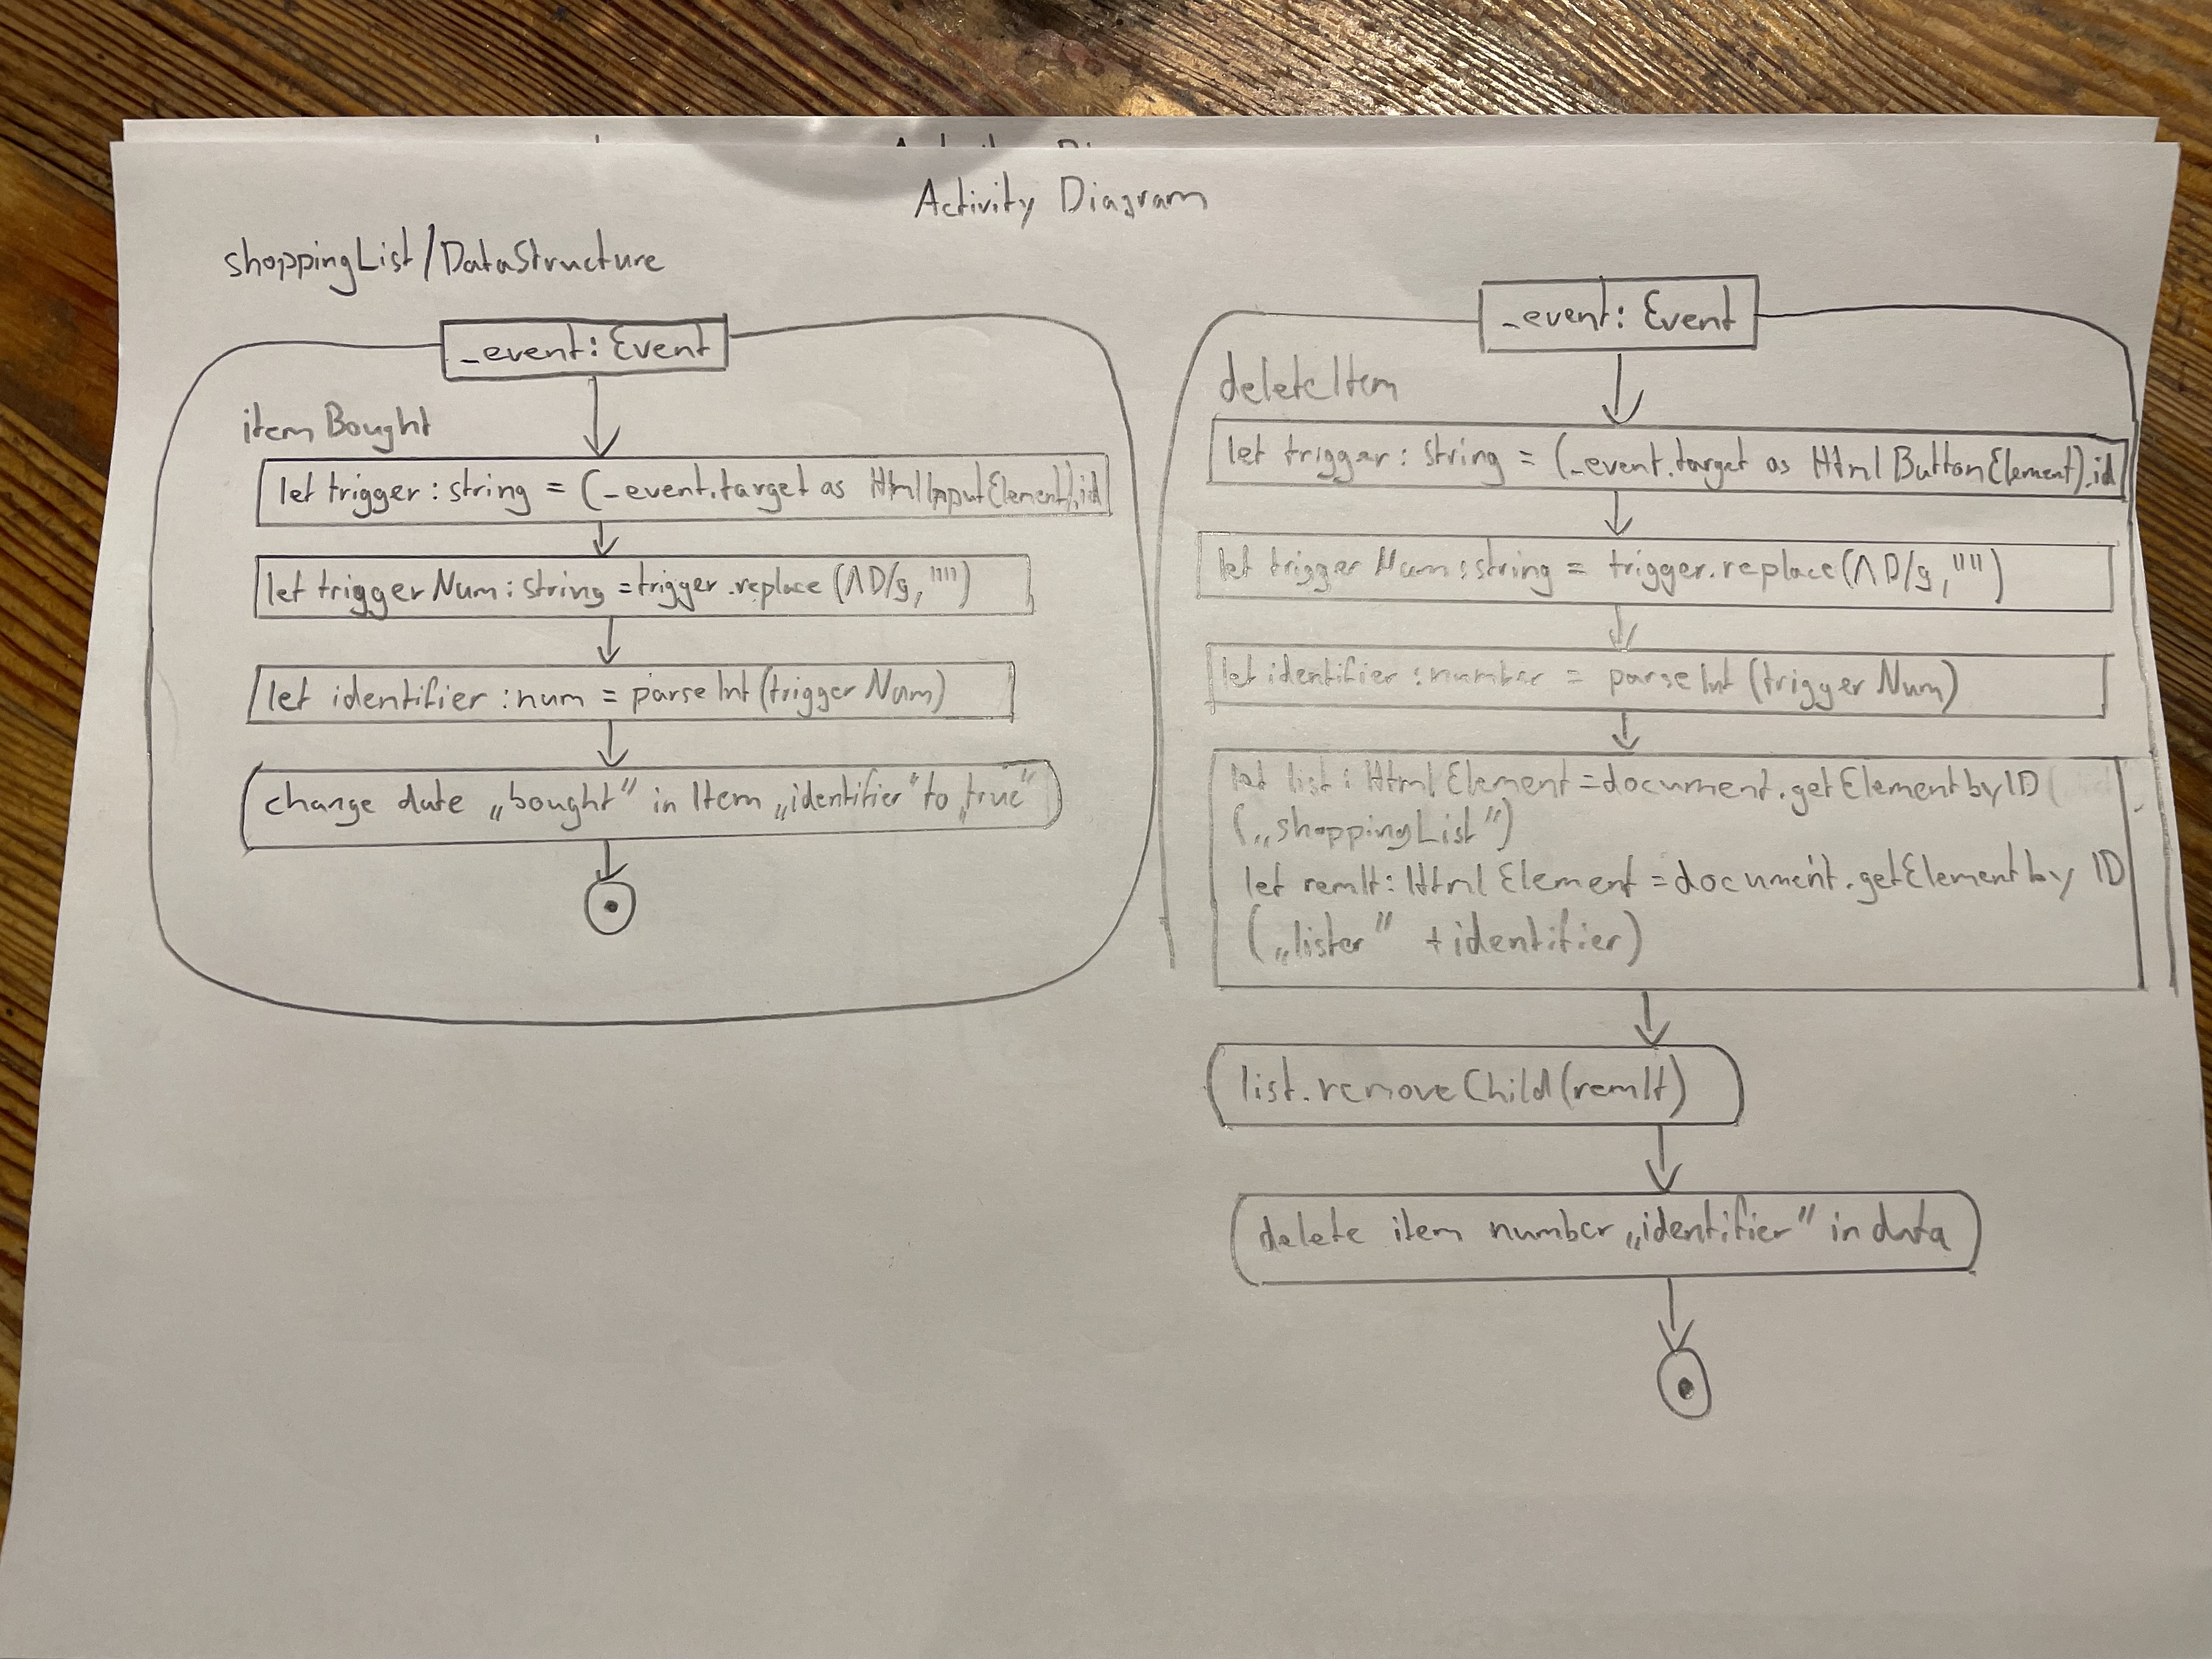 Activity Diagram
shoppingList/DataStructure
_event: Event
itemBought
let trigger: string = (_event.target as HtmlInputElement).id
let triggerNum: string = trigger.replace(/\D/g, "")
let identifier: num = parseInt(triggerNum)
change date „bought" in Item „identifier" to „true"
_event: Event
deleteItem
let trigger: string = (_event.target as HtmlButtonElement).id
let triggerNum: string = trigger.replace(/\D/g, "")
let identifier: number = parseInt(triggerNum)
let list: HtmlElement = document.getElementbyID(
(„shoppingList")
let remIt: HtmlElement = document.getElementbyID
(„lister" + identifier)
list.removeChild(remIt)
delete item number „identifier" in data